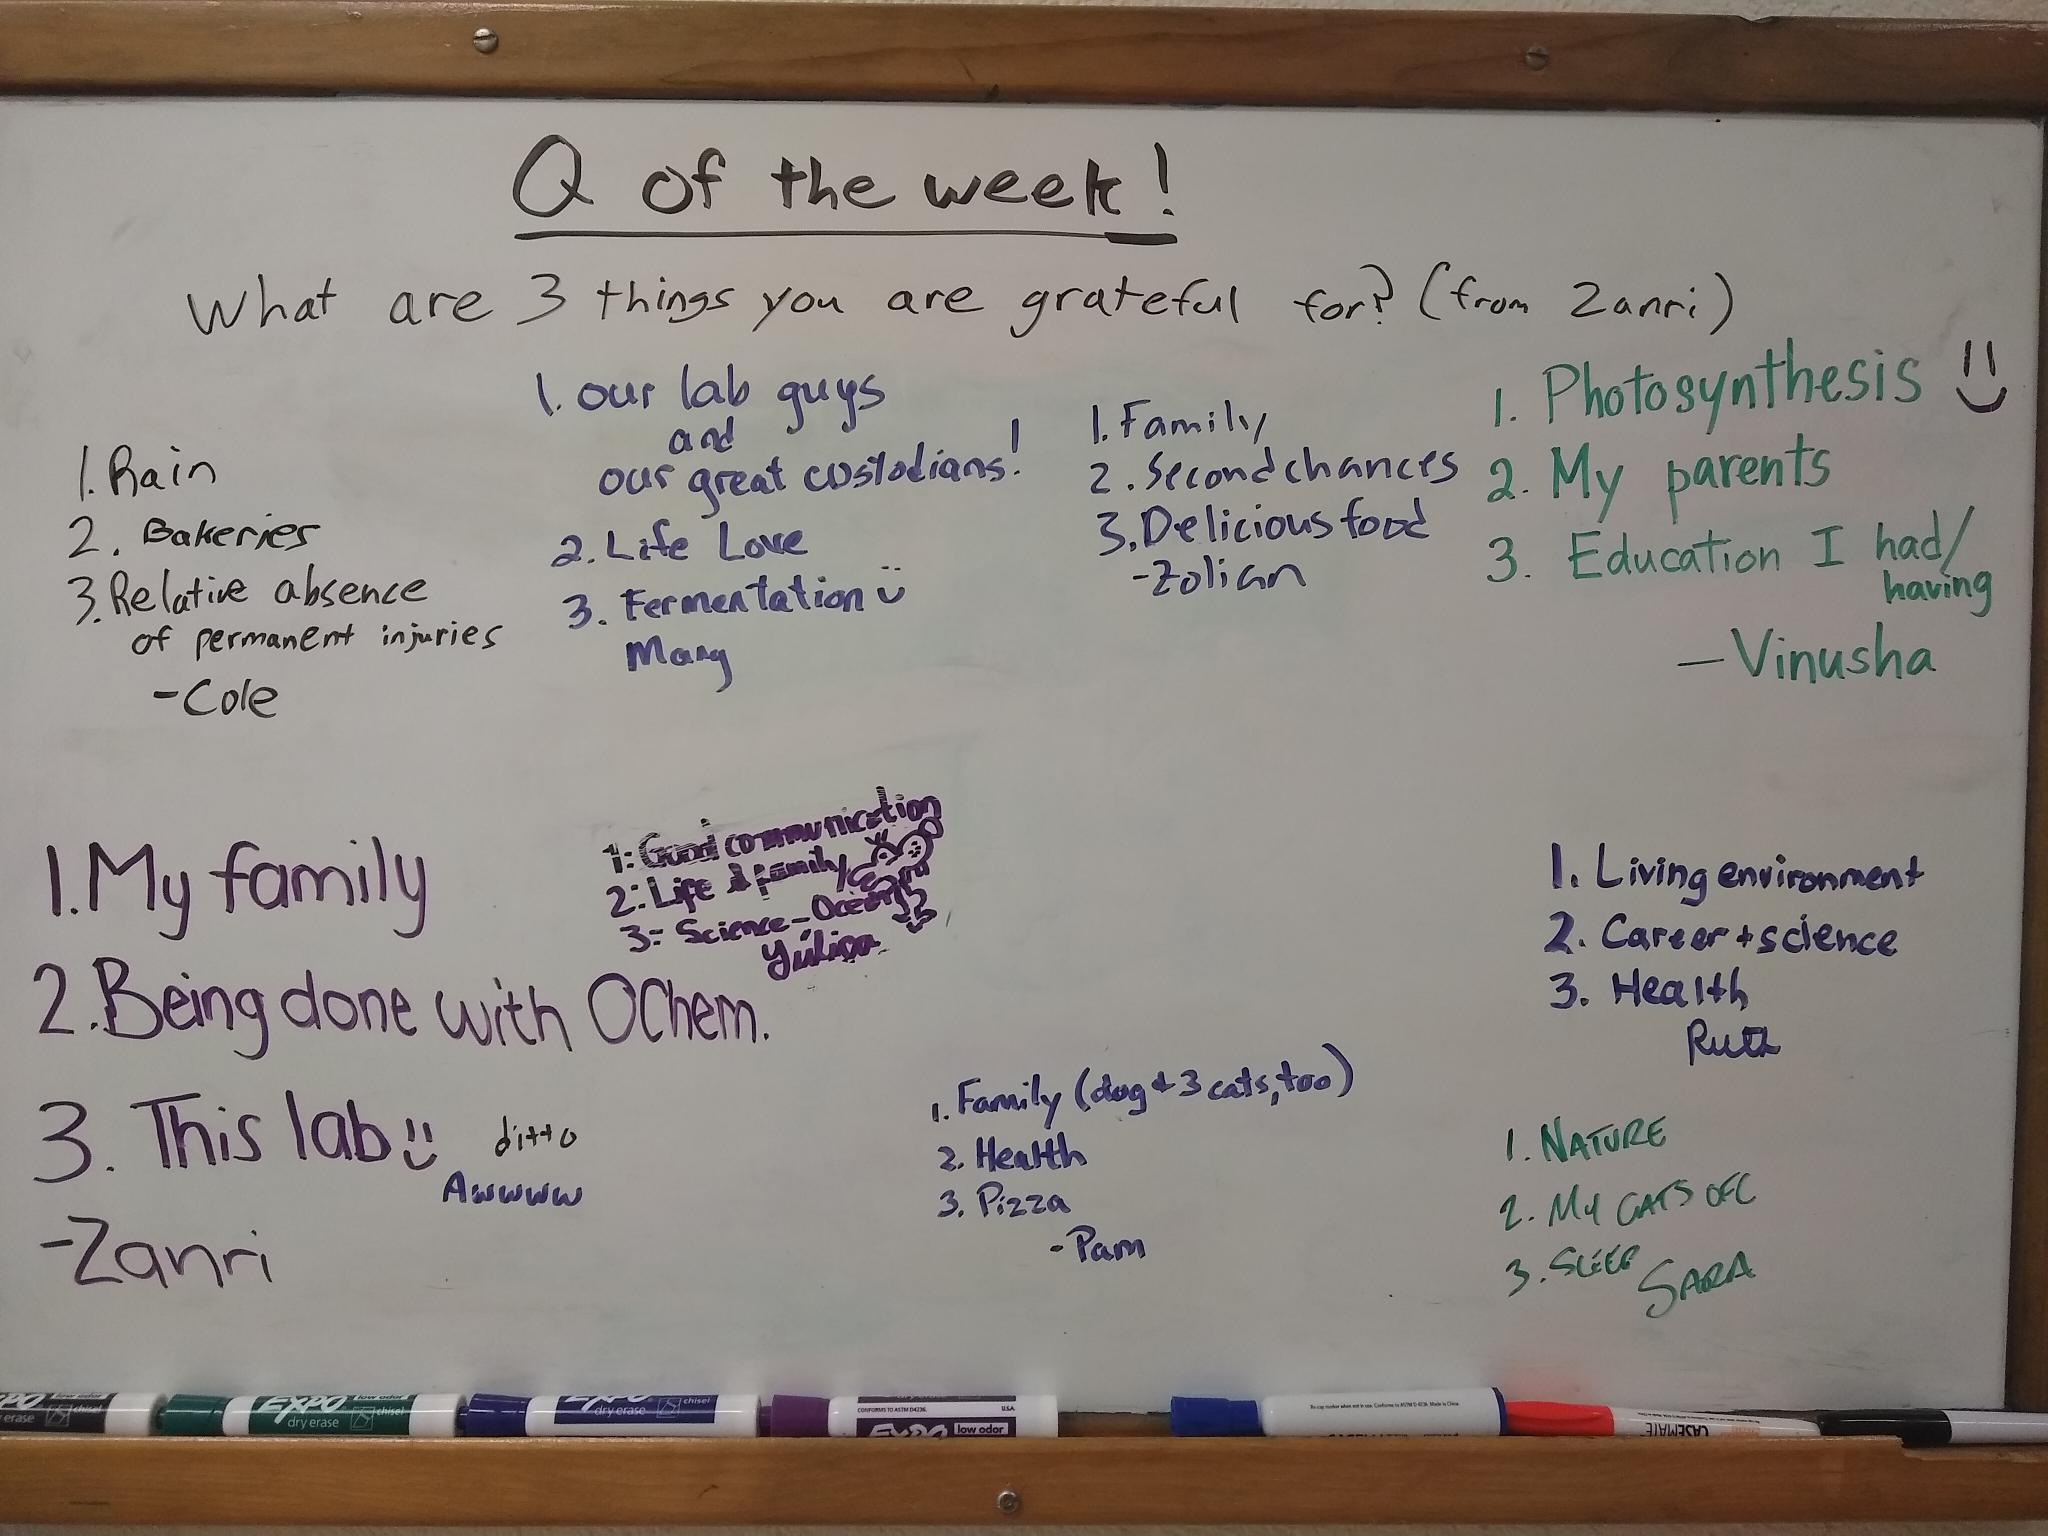 Q of the week!
What are 3 things you are grateful for? (from Zanri)
1. Rain
2. Bakeries
3. Relative absence
of permanent injuries
-Cole
1. our lab guys
and
our great custodians!
2. Life Love
3. Fermentation
Mang
1. Family
2. Second chances
3. Delicious food
-Zolian
1. Photosynthesis
2. My parents
3. Education I had/
having
- Vinusha
1. My family
2. Being done with OChem.
3. This lab
ditto
Awwww
-Zanri
1: Good communication
2: Life & family
3= Science-
Yúlica
1. Family (dog + 3 cats, too)
2. Health
3. Pizza
- Pam
1. Living environment
2. Career + science
3. Health
Ruth
1. NATURE
2. My CATS OFC
3. SLEEP
SARA
EXPO
dry erase
chisel
EXPO
low odor
dry erase
chisel
EXPO
dry erase
chisel
CONFORMS TO ASTM D4236.
U.S.A.
EXPO
low odor
CASEMATE